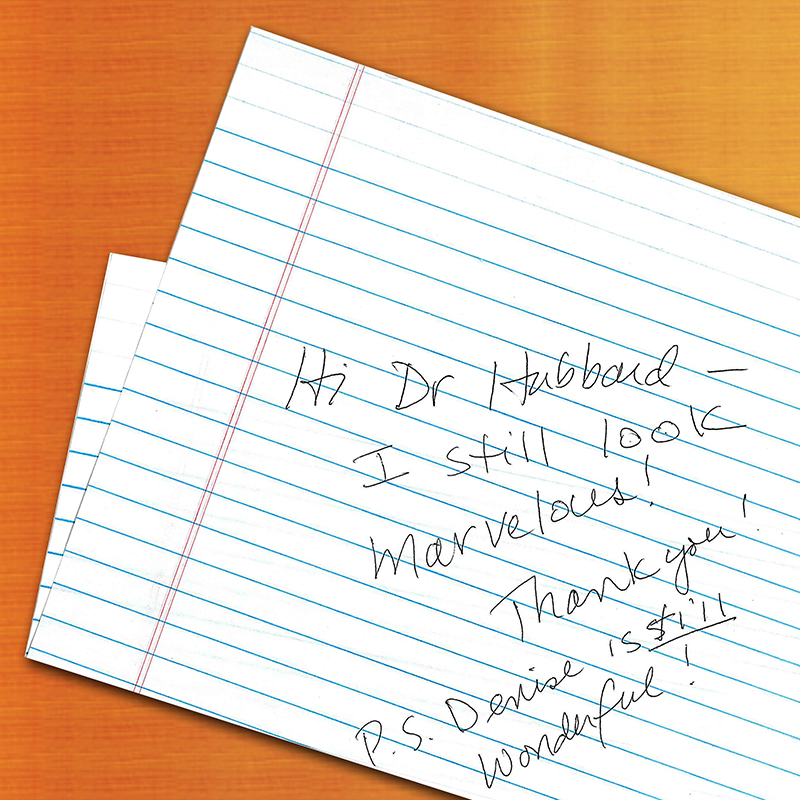 Hi Dr Hubbard —
I still look
marvelous!
Thank you!
P.S. Denise is still
wonderful!